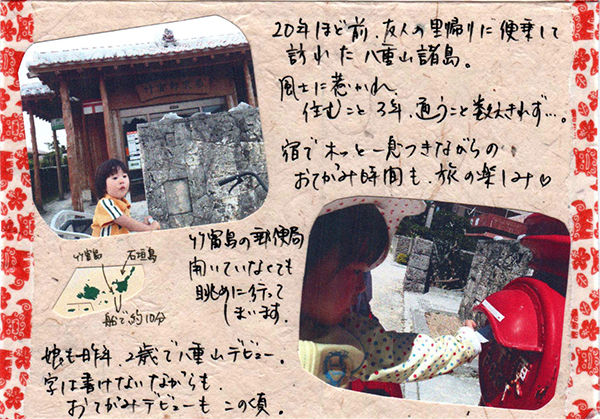 20年ほど前、友人の里帰りに便乗して
訪れた八重山諸島。
風土に惹かれ、
住むこと3年、通うこと数えきれず…。
宿でホッと一息つきながらの
おてがみ時間も、旅の楽しみ♡
竹富島の郵便局
開いていなくても
眺めに行って
しまいます。
竹富島
石垣島
船で約10分
娘も昨年、2歳で八重山デビュー。
字は書けないながらも、
おてがみデビューもこの頃。